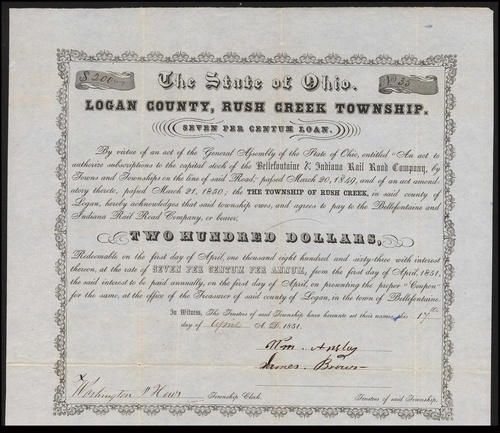 $200
No 35
The State of Ohio.
LOGAN COUNTY, RUSH CREEK TOWNSHIP.
SEVEN PER CENTUM LOAN.
By virtue of an act of the General Assembly of the State of Ohio, entitled "An act to
authorize subscriptions to the capital stock of the Bellefontaine & Indiana Rail Road Company, by
Towns and Townships on the line of said Road; passed March 20, 1849, and of an act amend
atory thereto, passed March 21, 1850; the THE TOWNSHIP OF RUSH CREEK, in said county of
Logan, hereby acknowledges that said township owes, and agrees to pay to the Bellefontaine and
Indiana Rail Road Company, or bearer,
TWO HUNDRED DOLLARS,
Redeemable on the first day of April, one thousand eight hundred and sixty-three with interest
thereon, at the rate of SEVEN PER CENTUM PER ANNUM, from the first day of April, 1851,
the said interest to be paid annually, on the first day of April, on presenting the proper "Coupon"
for the same, at the office of the Treasurer of said county of Logan, in the town of Bellefontaine.
In Witness, The Trustees of said Township have hereunto set their names, this 17th
day of April A. D. 1851.
Wm. Ansley
James Brown
Washington
Township Clerk.
Trustees of said Township.